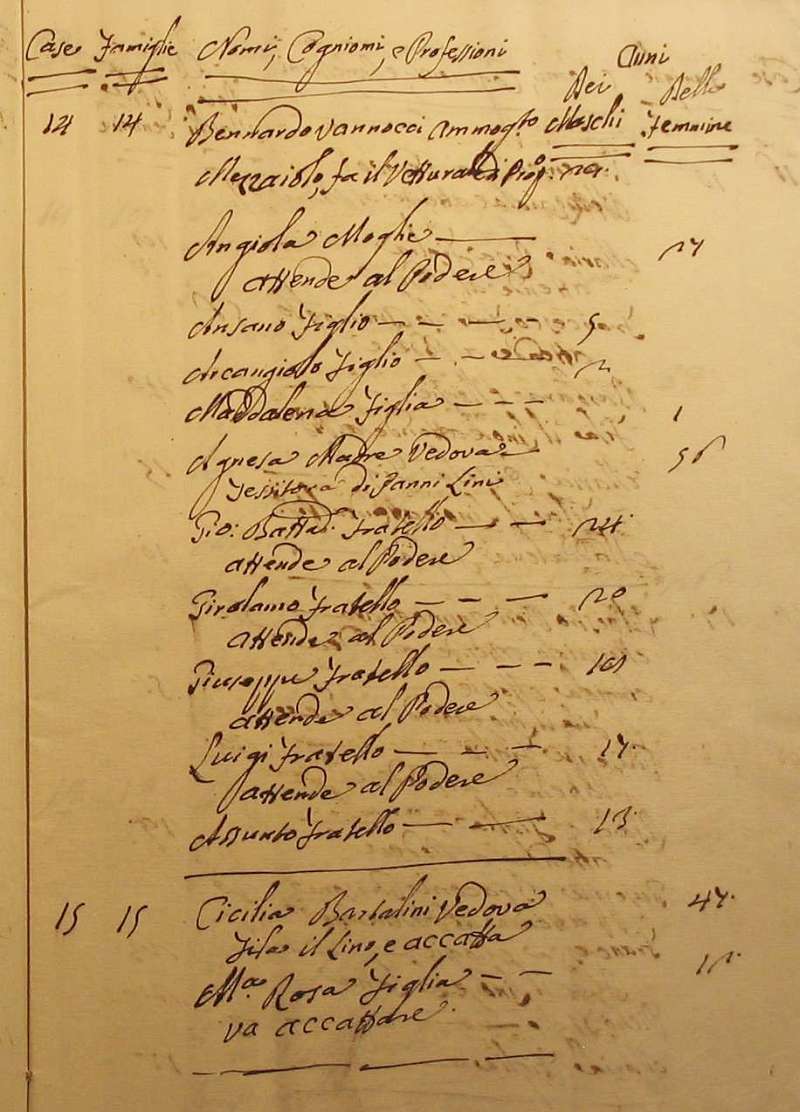 Case Famiglie Nomi, Cogniomi, e Professioni Anni
Dei Maschi Delle Femmine
14 14 Bernardo Vannocci Ammogto
Mezzaiolo, fa il Vetturale di Profne
Angiola Moglie 27
attende al Podere
Ansano figlio 5
Arcangiolo figlio 2
Maddalena figlia 1
Agnesa Madre Vedova 56
Tessitora di Panni Lini
Gio: Batta. fratello 24.
attende al Podere
Girolamo fratello 20
attende al Podere
Giuseppe fratello 19
attende al Podere
Luigi fratello 17.
attende al Podere
Assunto fratello 13.
15 15 Cicilia Bartalini Vedova 47.
fila il Lino, e accatta
Ma. Rosa figlia 16.
va accattare.